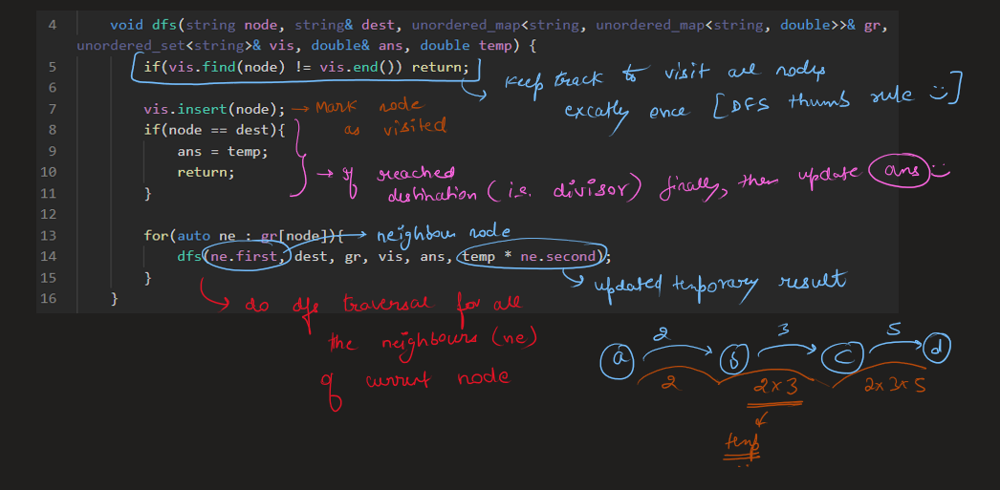 4 void dfs(string node, string& dest, unordered_map<string, unordered_map<string, double>>& gr,
unordered_set<string>& vis, double& ans, double temp) {
5 if(vis.find(node) != vis.end()) return;
6
Keep track to visit all nodes
excatly once [DFS thumb rule
7 vis.insert(node); → Mark node
as visited
8 if(node == dest){
9 ans = temp;
10 return;
11 }
→ If reached
destination (i.e. divisor) finally, then update ans
12
13 for(auto ne : gr[node]){ → neighbour node
14 dfs(ne.first, dest, gr, vis, ans, temp * ne.second);
15 }
16 }
updated temporary result
do dfs traversal for all
the neighbours (ne)
of current node
2 3 5
a b c d
2 2×3 2×3×5
temp